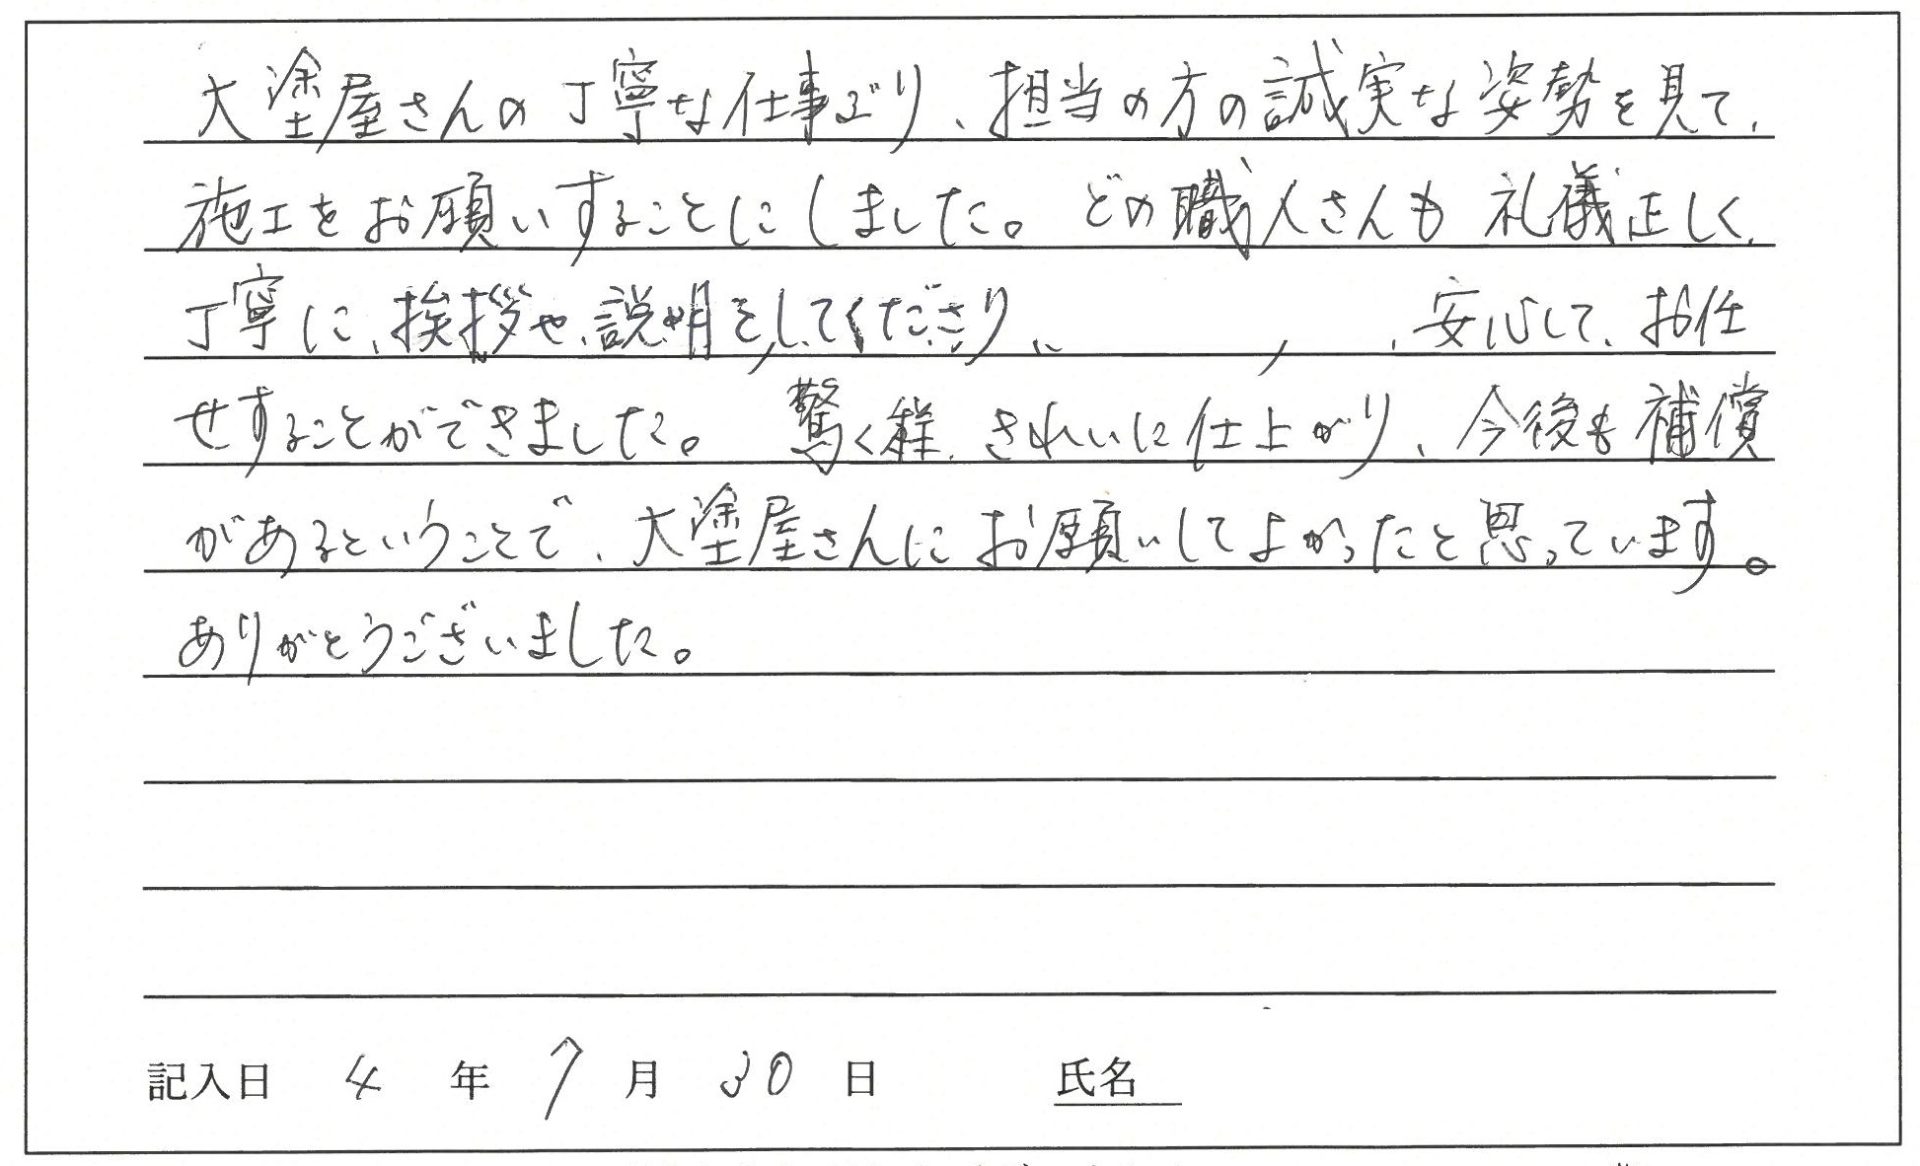 大塗屋さんの丁寧な仕事ぶり、担当の方の誠実な姿勢を見て、
施工をお願いすることにしました。どの職人さんも礼儀正しく、
丁寧に、挨拶や、説明をしてくださり、安心して、お任
せすることができました。驚く程、きれいに仕上がり、今後も補償
があるということで、大塗屋さんにお願いしてよかったと思っています。
ありがとうございました。
記入日 4 年 7 月 30 日 氏名